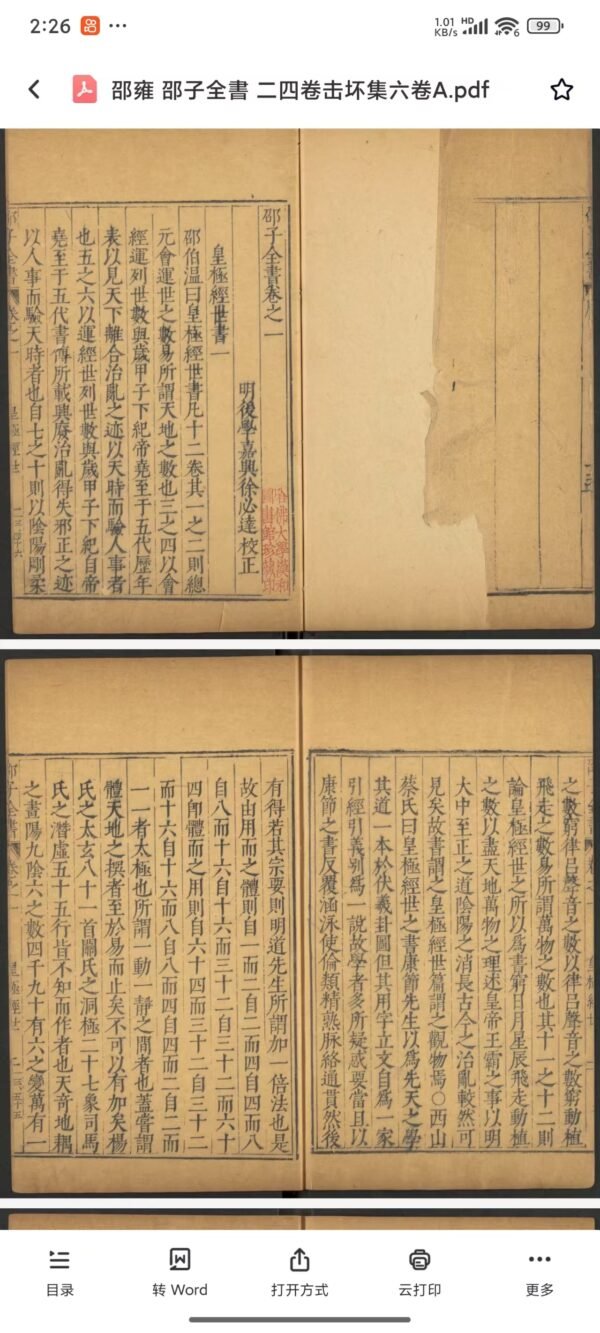 2:26
1.01 KB/s
HD
6
99
邵雍 邵子全書 二四卷击坏集六卷A.pdf
邵子全書卷之一
明後學嘉興徐必達校正
皇極經世書一
邵伯温曰皇極經世書凡十二卷其一之二則總
元會運世之數易所謂天地之數也三之四以會
經運列世數與歲甲子下紀帝堯至于五代歷年
表以見天下離合治亂之迹以天時而驗人事者
也五之六以運經世列世數與歲甲子下紀自帝
堯至于五代書傳所載興廢治亂得失邪正之迹
以人事而驗天時者也自七之十則以陰陽剛柔
邵子全書 卷之一 皇極經世
之數窮律吕聲音之數以律吕聲音之數窮動植
飛走之數易所謂萬物之數也其十一之十二則
論皇極經世之所以爲書窮日月星辰飛走動植
之數以盡天地萬物之理述皇帝王霸之事以明
大中至正之道陰陽之消長古今之治亂較然可
見矣故書謂之皇極經世篇謂之觀物焉〇西山
蔡氏曰皇極經世之書康節先生以爲先天之學
其道一本於伏羲卦圖但其用字立文自爲一家
引經引義别爲一說故學者多所疑惑要當且以
康節之書反覆涵泳使倫類精熟脉絡通貫然後
有得若其宗要則明道先生所謂加一倍法也是
故由用而之體則自一而二自二而四自四而八
自八而十六自十六而三十二自三十二而六十
四卽體而之用則自六十四而三十二自三十二
而十六自十六而八自八而四自四而二自二而
一一者太極也所謂一動一靜之間者也蓋嘗謂
體天地之撰者至於易而止矣不可以有加矣楊
氏之太玄八十一首關氏之洞極二十七象司馬
氏之潛虚五十五行皆不知而作者也天竒地耦
之畫陽九陰六之數四千九十有六之變萬有一
邵子全書 卷之一 皇極經世
目录
转 Word
打开方式
云打印
更多